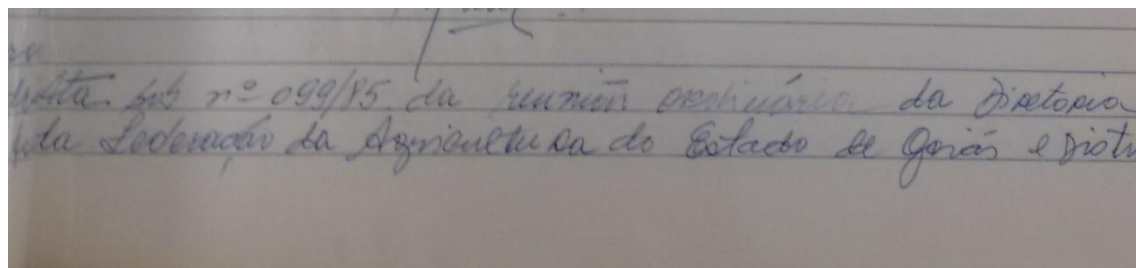 Ata sob nº 099/85 da reunião ordinária da Diretoria
da Federação da Agricultura do Estado de Goiás e Distr